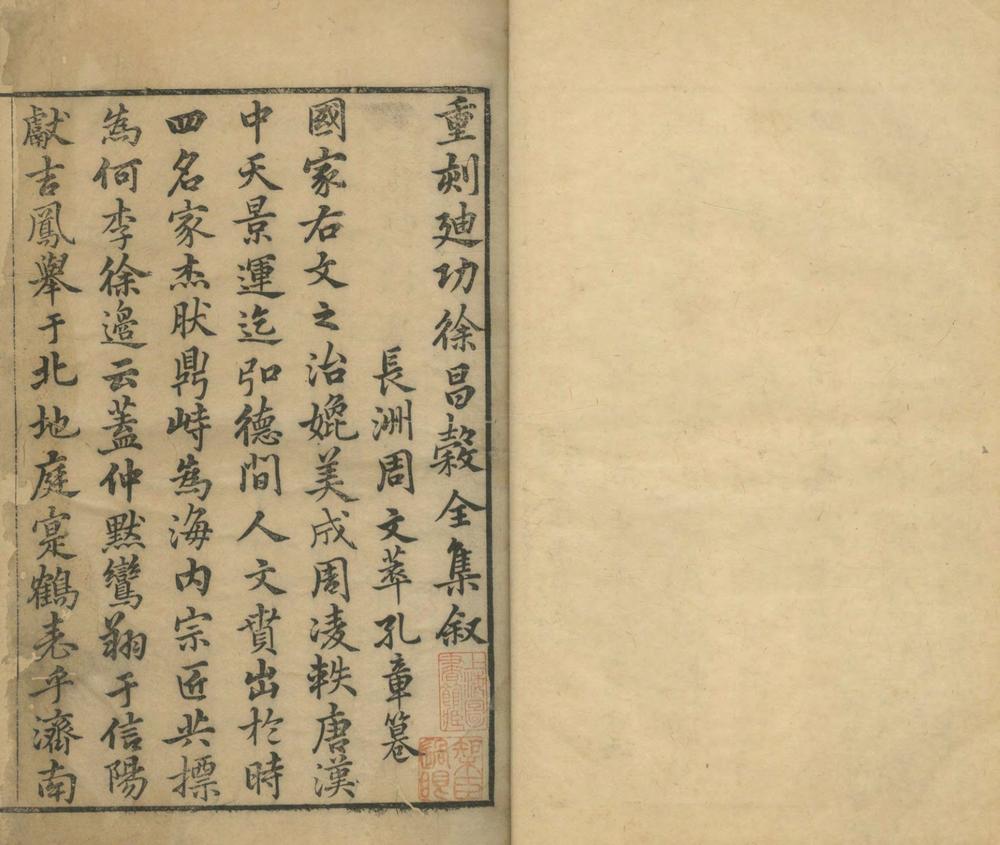 重刻迪功徐昌穀全集叙
長洲周文萃孔章篹
國家右文之治媲美成周凌軼唐漢
中天景運迄弘德間人文賁出於時
四名家杰肰鼎峙為海内宗匠共標
為何李徐邉云蓋仲默鸞翔于信陽
獻吉鳳舉于北地庭寔鶴䖏乎濟南